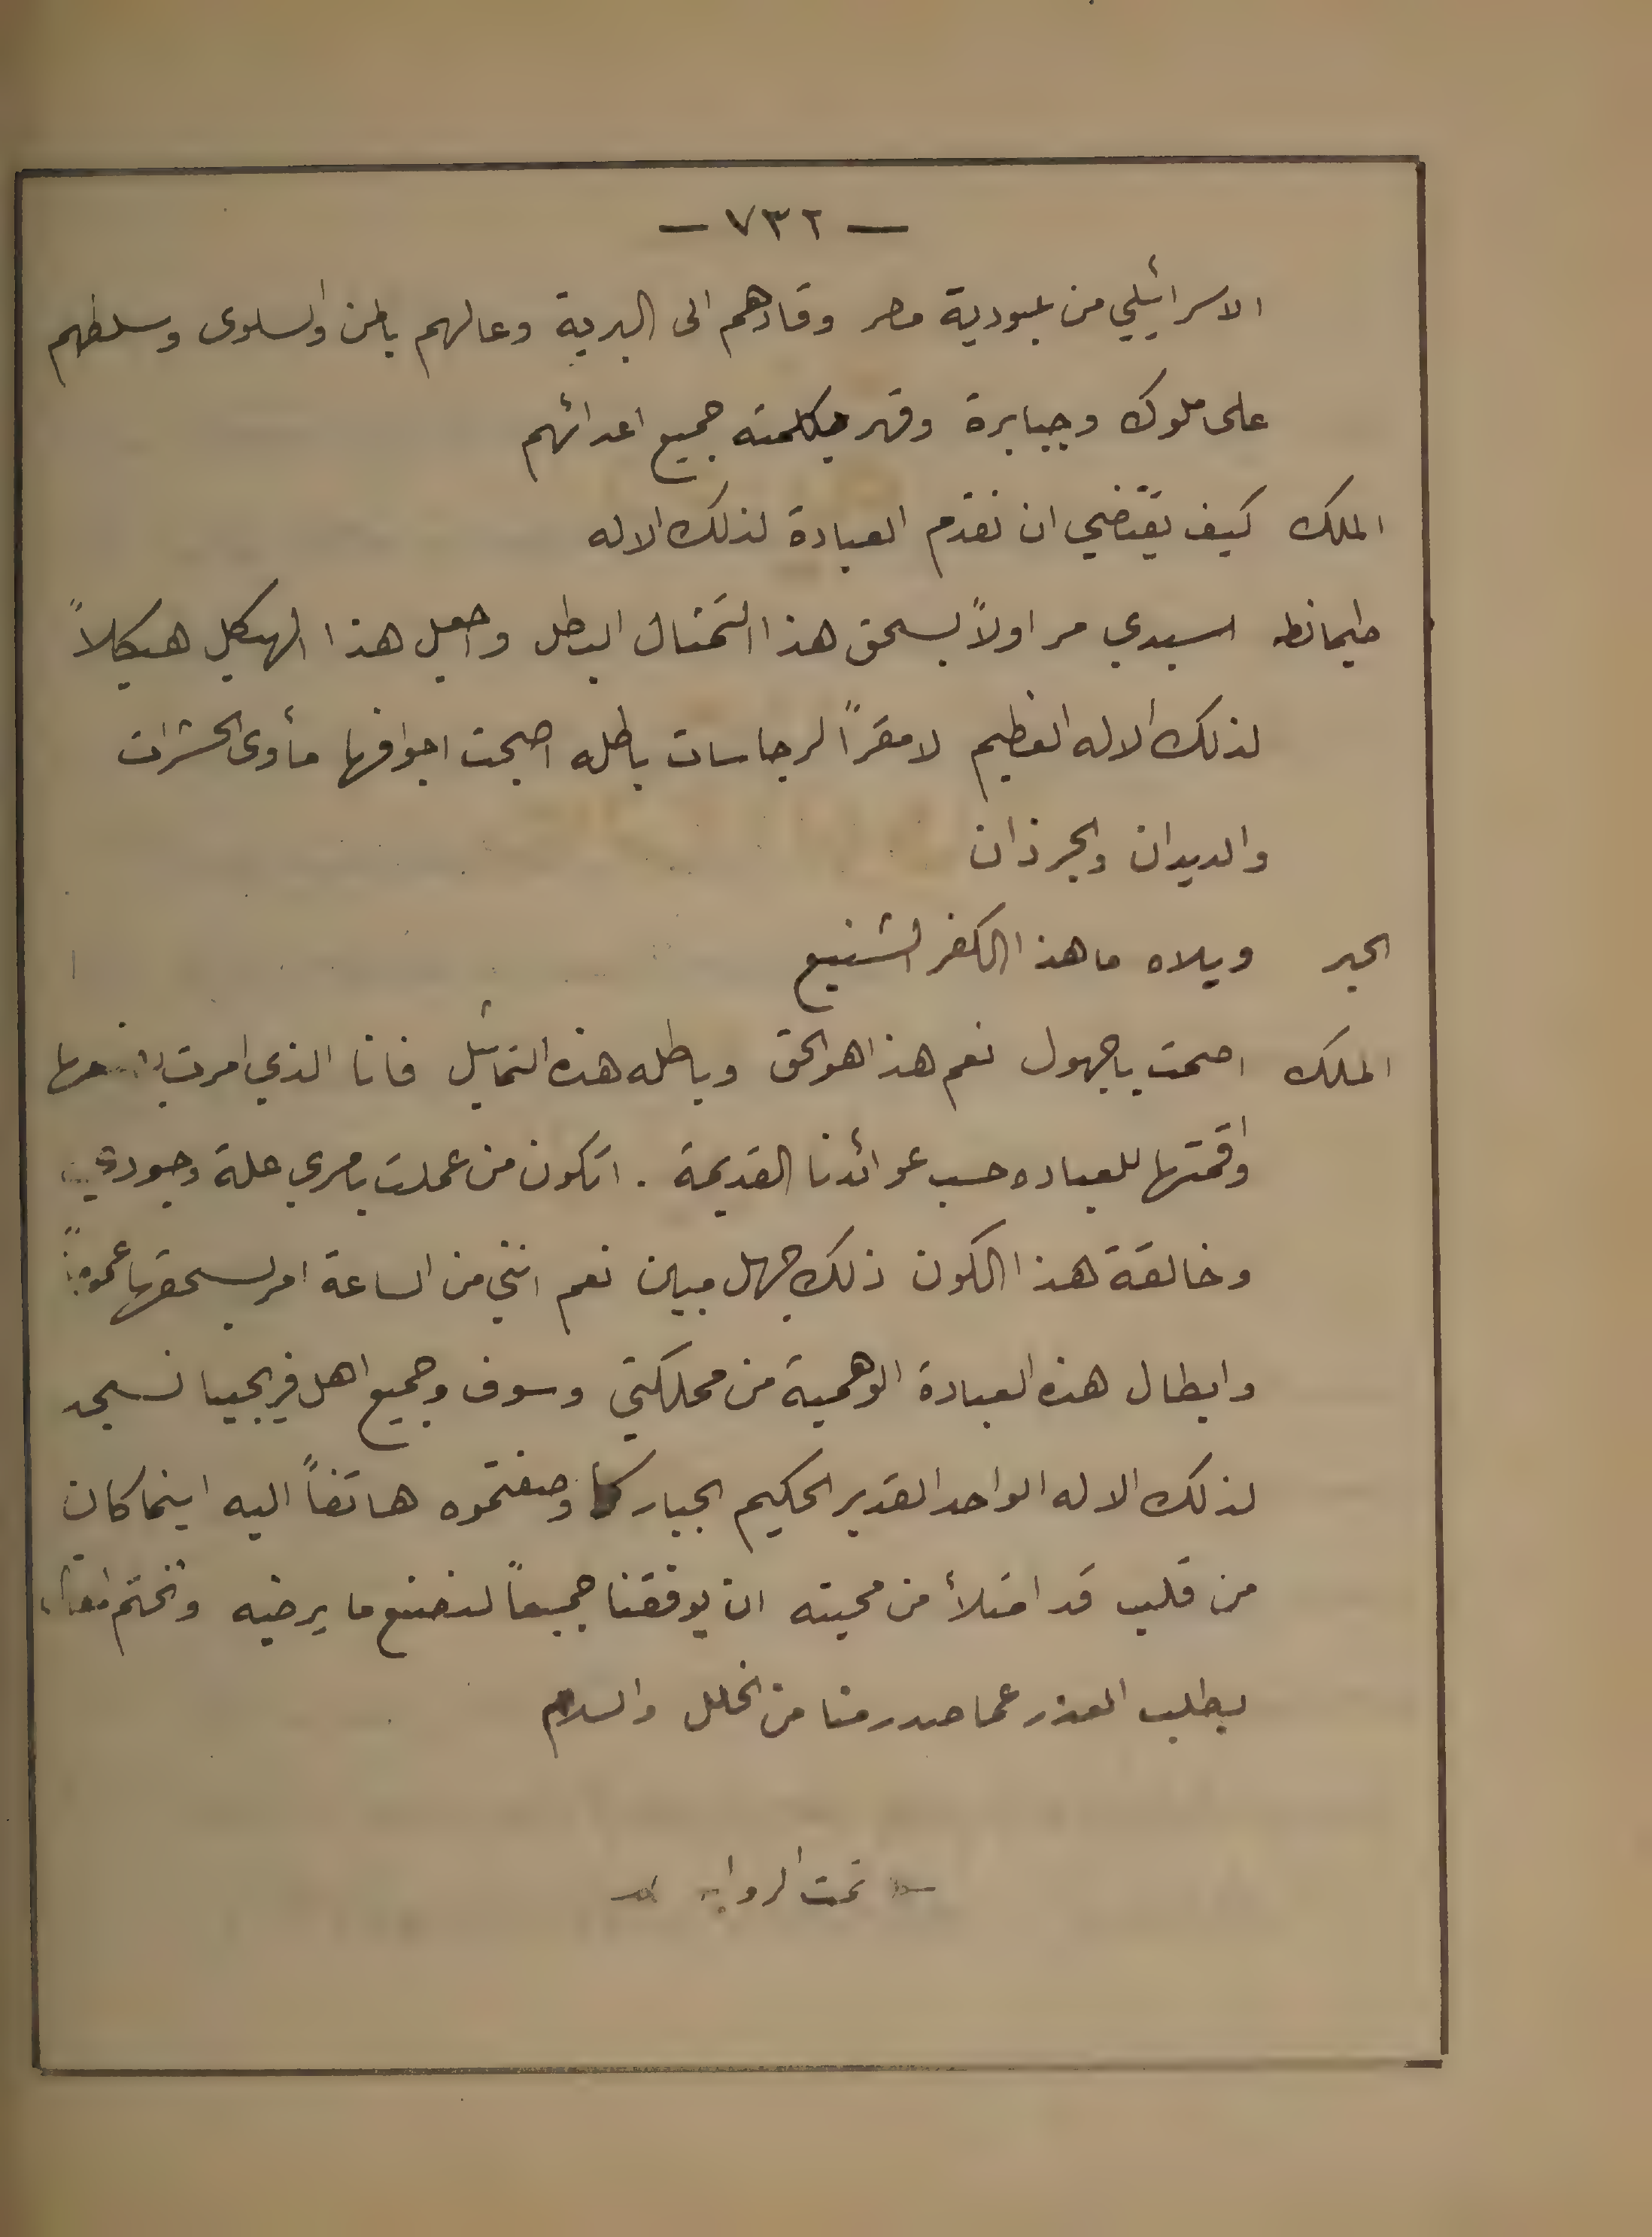 — ٧٣٢ —
الاسرائيلي من عبودية مصر وقادهم الى البرية وعالهم بالمن والسلوى وسلطهم
على ملوك وجبابرة وقهر بكلمته جميع اعدائهم
الملك كيف يقتضي ان نقدم العبادة لذلك الاله
طيمانطه اسيدي مر اولاً بسحق هذا التمثال الباطل واجعل هذا الهيكل هيكلاً
لذلك الاله العظيم لا مقراً لرجاسات باطله اصبحت اجوافها مأوى الحشرات
والديدان والجرذان
الحبر ويلاه ما هذا الكفر الشنيع
الملك اصمت يا جهول نعم هذا هو الحق وباطله هذه التماثيل فانا الذي امرت
واقمتها للعباده حسب عوائدنا القديمة . اتكون من عملت بامري علة وجودي
وخالقة هذا الكون ذلك جهل مبين نعم انني من الساعة امر بسحقها عموماً
وابطال هذه العبادة الوهمية من مملكتي وسوف وجميع اهل فريجيا نسجد
لذلك الاله الواحد القدير الحكيم الجبار كما وصفتموه هاتفاً اليه اينما كان
من قلب قد امتلأ من محبته ان يوفقنا جميعاً لنصنع ما يرضيه ونختم
بطلب العذر عما صدر منا من الخلل والسلام
تمت الرواية